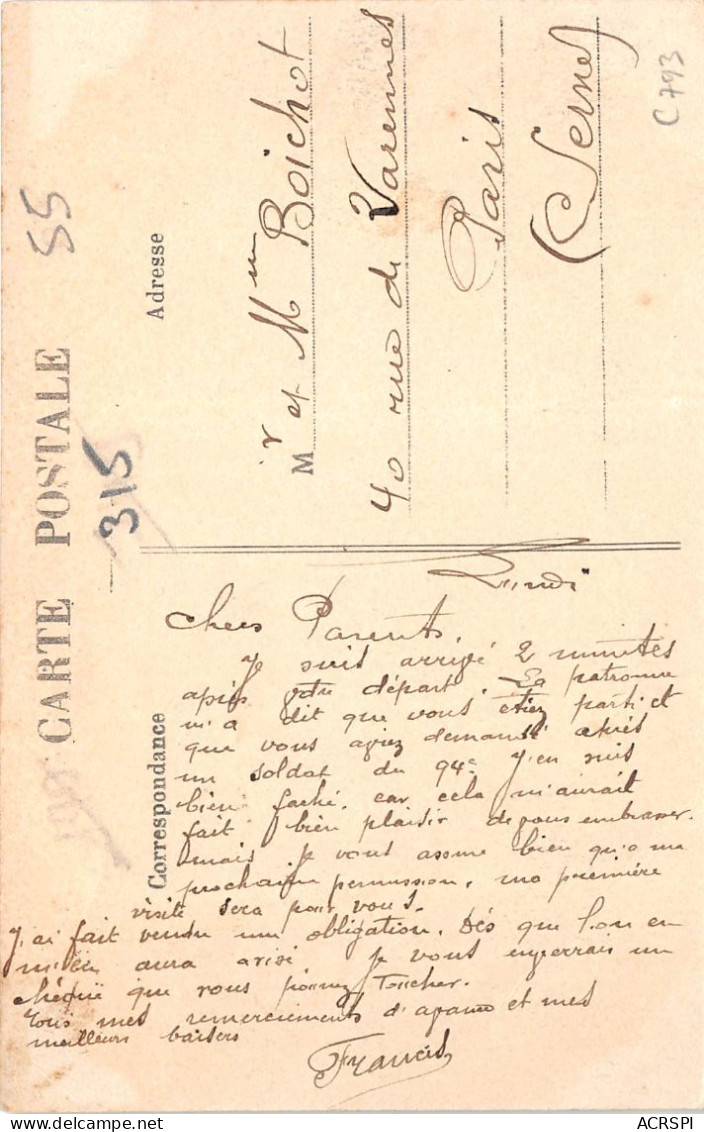 CARTE POSTALE
55
315
C 793
Correspondance
Adresse
Mr et Mme Boichot
40 rue de Varennes
Paris
(Seine)
Lundi
Chers Parents,
Je suis arrivé 2 minutes
après votre départ. La patronne
m'a dit que vous étiez parti et
que vous aviez demandé après
un soldat du 94e. J'en suis
bien faché. car cela m'aurait
fait bien plaisir de vous embrasser.
mais je vous assure bien qu'a ma
prochaine permission, ma première
visite sera pour vous.
J'ai fait vendu une obligation. Dès que l'on en
m'en aura avisé je vous enverrais un
chèque que vous pourrez toucher.
Tous mes remerciements d'avance et mes
meilleurs baisers
Francis
ACRSPI